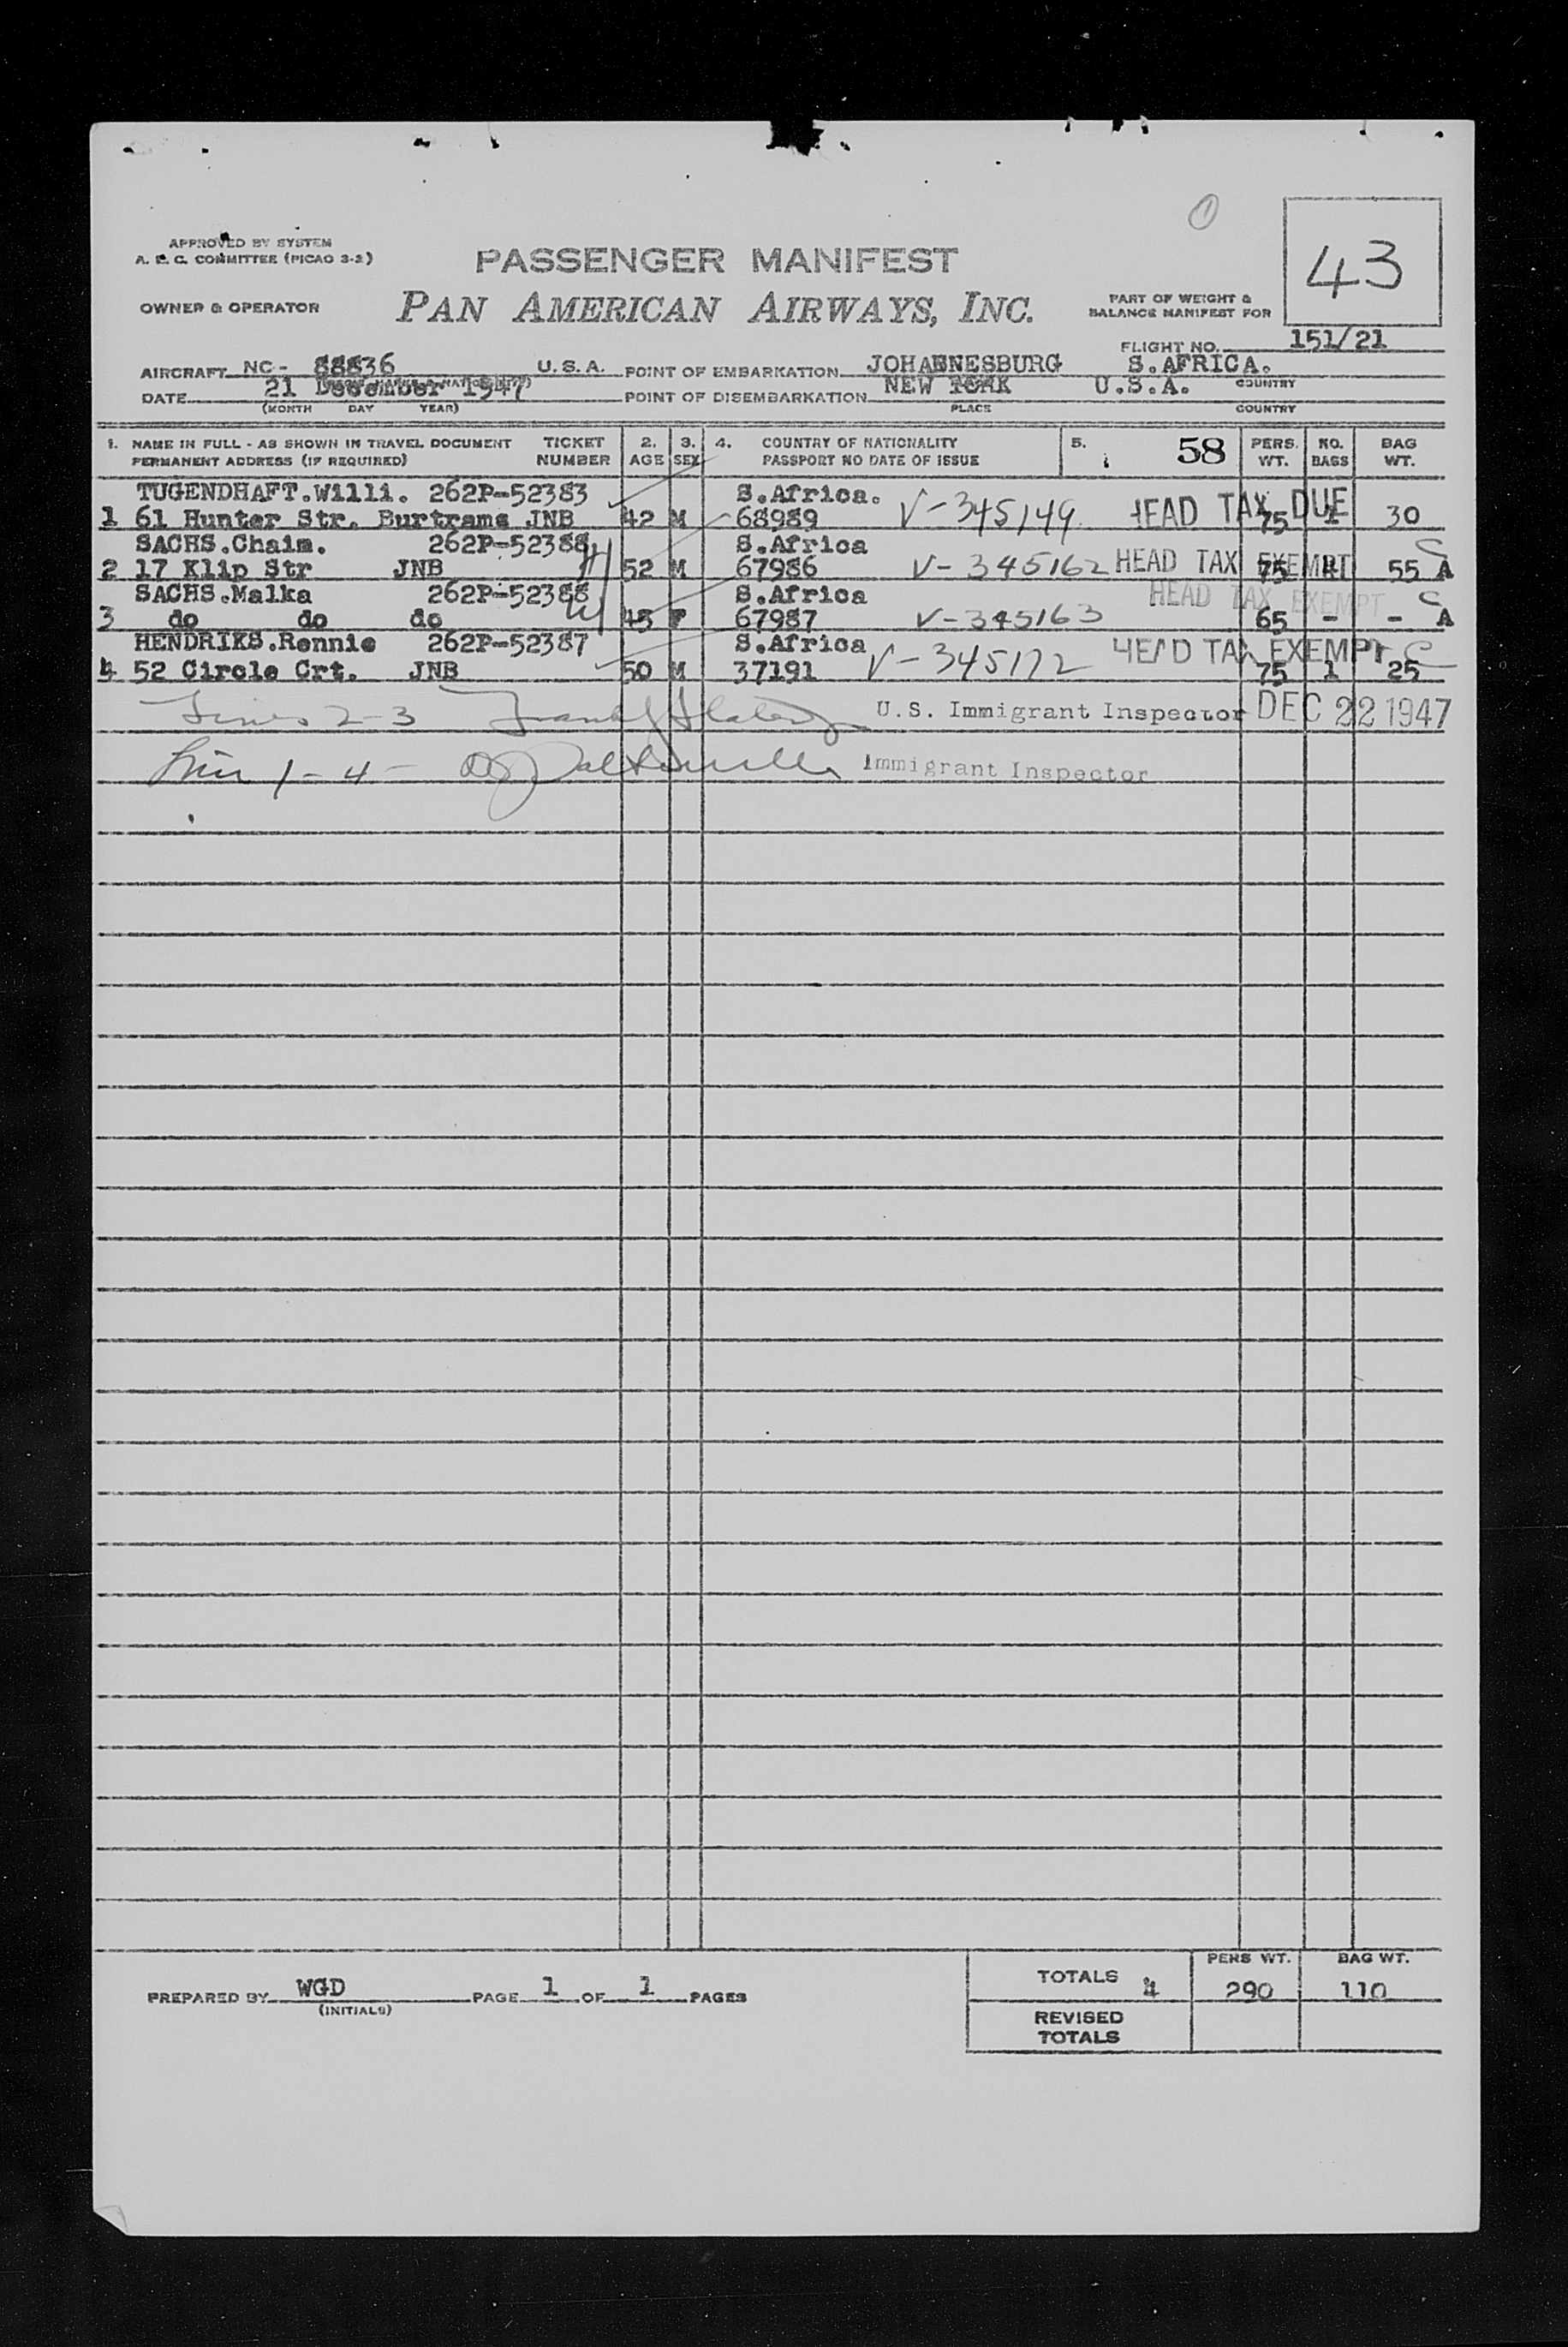 1
43
APPROVED BY SYSTEM
A. E. C. COMMITTEE (PICAO 3-2)
PASSENGER MANIFEST
OWNER & OPERATOR
PAN AMERICAN AIRWAYS, INC.
PART OF WEIGHT &
BALANCE MANIFEST FOR
FLIGHT NO. 151/21
AIRCRAFT NC- 88836 U.S.A. POINT OF EMBARKATION JOHANNESBURG S.AFRICA.
COUNTRY
DATE 21 December 1947 POINT OF DISEMBARKATION NEW YORK U.S.A.
(MONTH DAY YEAR) PLACE COUNTRY
1. NAME IN FULL - AS SHOWN IN TRAVEL DOCUMENT TICKET 2. 3. 4. COUNTRY OF NATIONALITY 5. 58 PERS. NO. BAG
PERMANENT ADDRESS (IF REQUIRED) NUMBER AGE SEX PASSPORT NO DATE OF ISSUE WT. BAGS WT.
TUGENDHAFT.Willi. 262P-52383 S.Africa. V-345149 HEAD TAX DUE
1 61 Hunter Str. Burtrams JNB 42 M 68989 75 1 30
SACHS.Chaim. 262P-52388 S.Africa C
2 17 Klip Str JNB 52 M 67986 V-345162 HEAD TAX EXEMPT 75 55 A
SACHS.Malka 262P-52388 S.Africa HEAD TAX EXEMPT C
3 do do do 45 F 67987 V-345163 65 - - A
HENDRIKS.Rennie 262P-52387 S.Africa V-345172 HEAD TAX EXEMPT C
4 52 Circle Crt. JNB 50 M 37191 75 1 25
Lines 2-3 U.S. Immigrant Inspector DEC 22 1947
Line 1-4- Immigrant Inspector
PERS WT. BAG WT.
TOTALS 4 290 110
PREPARED BY WGD PAGE 1 OF 1 PAGES
(INITIALS)
REVISED
TOTALS